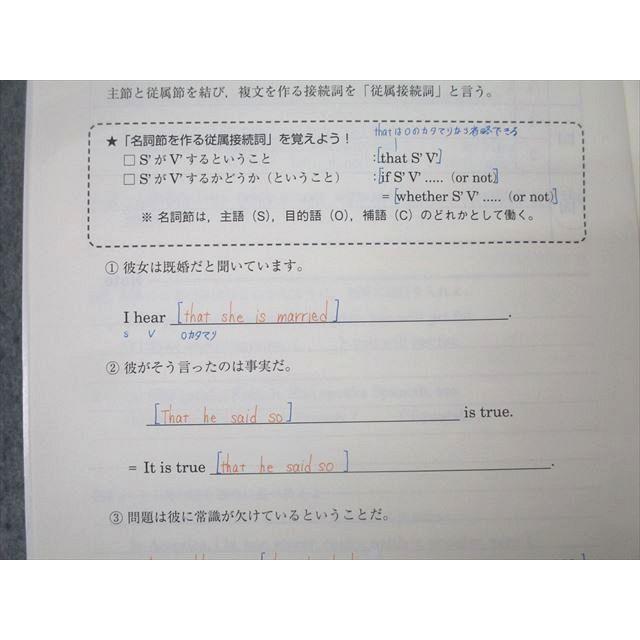 主節と従属節を結び，複文を作る接続詞を「従属接続詞」と言う。
thatはOのカタマリなら省略できる
★「名詞節を作る従属接続詞」を覚えよう！
□ S' が V' するということ :[that S' V']
□ S' が V' するかどうか（ということ） :[if S' V' ..... (or not)]
= [whether S' V' ..... (or not)]
※ 名詞節は，主語（S），目的語（O），補語（C）のどれかとして働く。
① 彼女は既婚だと聞いています。
I hear [that she is married].
S V Oカタマリ
② 彼がそう言ったのは事実だ。
[That he said so] is true.
= It is true [that he said so].
③ 問題は彼に常識が欠けているということだ。